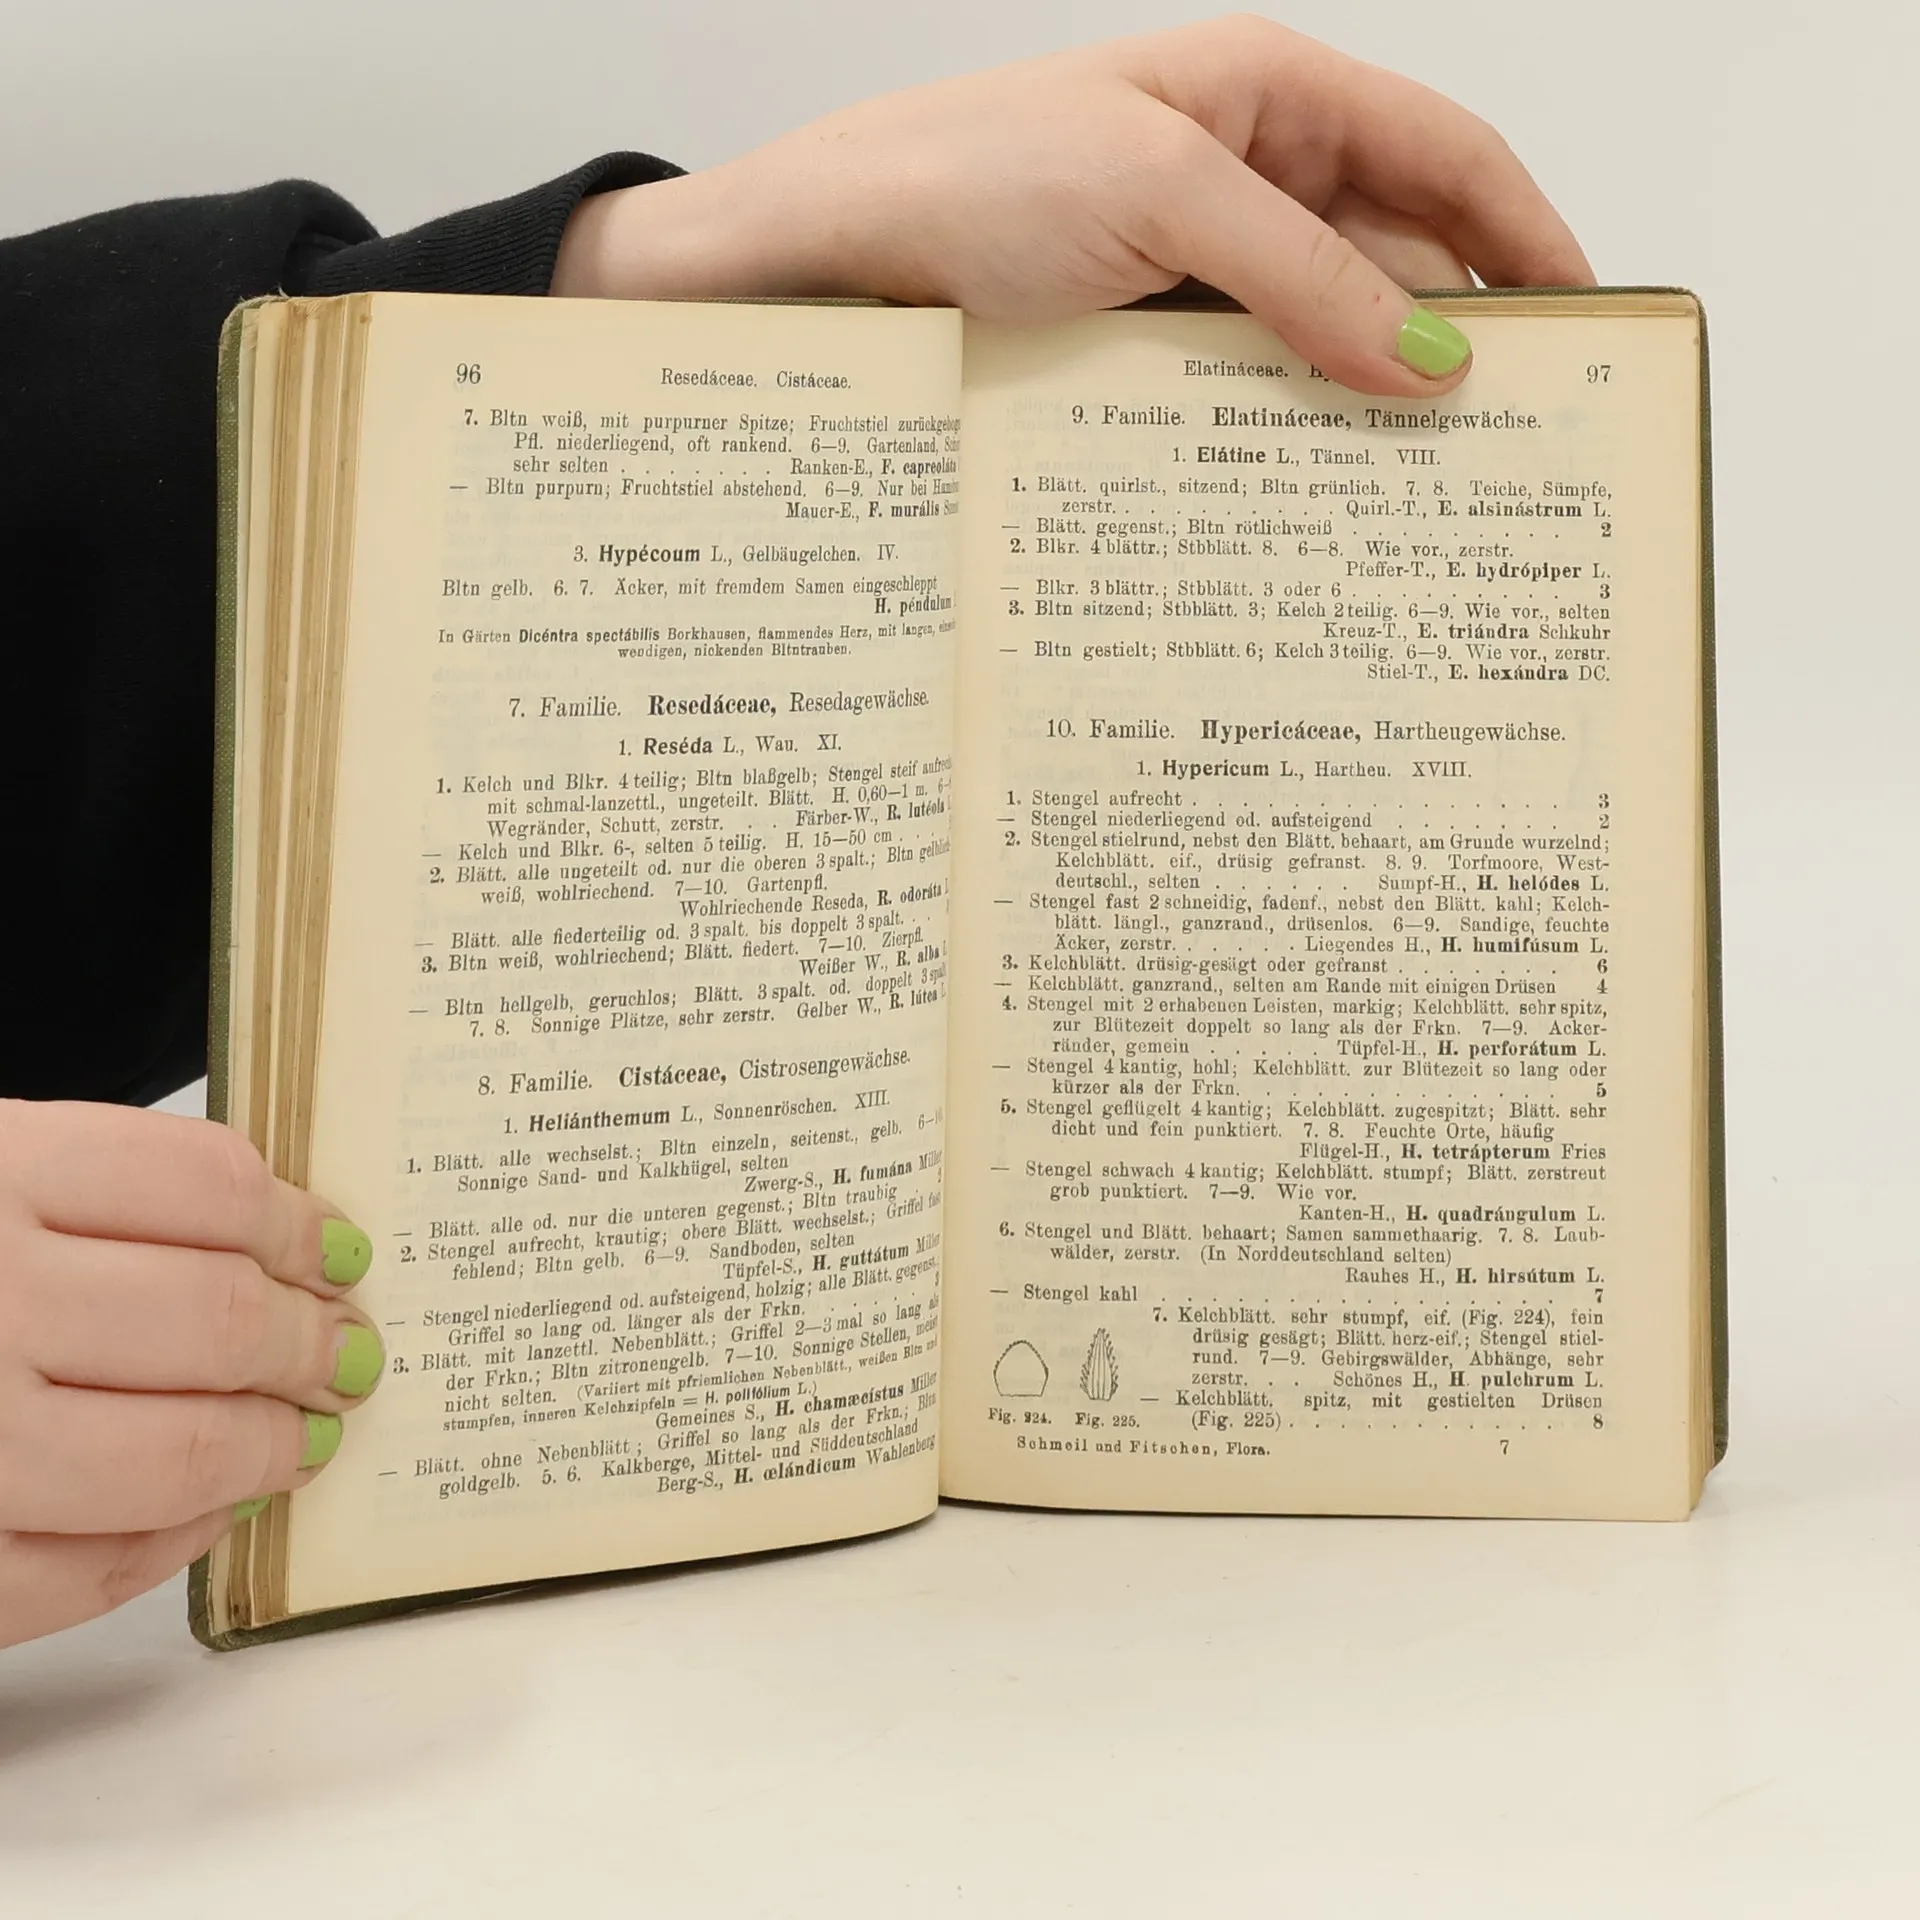 96
Resedáceae. Cistáceae.
7. Bltn weiß, mit purpurner Spitze; Fruchtstiel
Pfl. niederliegend, oft rankend. 6—9. Gartenland,
sehr selten . . . . . . . Ranken-E., F. capreoláta
— Bltn purpurn; Fruchtstiel abstehend. 6—9. Nur bei
Mauer-E., F. murális
3. Hypécoum L., Gelbäugelchen. IV.
Bltn gelb. 6. 7. Äcker, mit fremdem Samen eingeschleppt
H. péndulum
In Gärten Dicéntra spectábilis Borkhausen, flammendes Herz, mit langen,
wendigen, nickenden Bltntrauben.
7. Familie. Resedáceae, Resedagewächse.
1. Reséda L., Wau. XI.
1. Kelch und Blkr. 4teilig; Bltn blaßgelb; Stengel steif
mit schmal-lanzettl., ungeteilt. Blätt. H. 0,60—1 m.
Wegränder, Schutt, zerstr. . . Färber-W., R. lutéola
— Kelch und Blkr. 6-, selten 5teilig. H. 15—50 cm . . .
2. Blätt. alle ungeteilt od. nur die oberen 3spalt.; Bltn
weiß, wohlriechend. 7—10. Gartenpfl.
Wohlriechende Reseda, R. odoráta
— Blätt. alle fiederteilig od. 3spalt. bis doppelt 3spalt. . .
3. Bltn weiß, wohlriechend; Blätt. fiedert. 7—10. Zierpfl.
Weißer W., R. alba
— Bltn hellgelb, geruchlos; Blätt. 3spalt. od. doppelt
7. 8. Sonnige Plätze, sehr zerstr. Gelber W., R. lútea
8. Familie. Cistáceae, Cistrosengewächse.
1. Heliánthemum L., Sonnenröschen. XIII.
1. Blätt. alle wechselst.; Bltn einzeln, seitenst., gelb.
Sonnige Sand- und Kalkhügel, selten
Zwerg-S., H. fumána Miller
— Blätt. alle od. nur die unteren gegenst.; Bltn traubig .
2. Stengel aufrecht, krautig; obere Blätt. wechselst.; Griffel
fehlend; Bltn gelb. 6—9. Sandboden, selten
Tüpfel-S., H. guttátum Miller
— Stengel niederliegend od. aufsteigend, holzig; alle Blätt. gegenst.;
Griffel so lang od. länger als der Frkn. . . . . . 3
3. Blätt. mit lanzettl. Nebenblätt.; Griffel 2—3mal so lang als
der Frkn.; Bltn zitronengelb. 7—10. Sonnige Stellen, meist
nicht selten. (Variiert mit pfriemlichen Nebenblätt., weißen Bltn und
stumpfen, inneren Kelchzipfeln = H. polifólium L.)
Gemeines S., H. chamæcístus Miller
— Blätt. ohne Nebenblätt; Griffel so lang als der Frkn.; Bltn
goldgelb. 5. 6. Kalkberge, Mittel- und Süddeutschland
Berg-S., H. œlándicum Wahlenberg
Elatináceae.
97
9. Familie. Elatináceae, Tännelgewächse.
1. Elátine L., Tännel. VIII.
1. Blätt. quirlst., sitzend; Bltn grünlich. 7. 8. Teiche, Sümpfe,
zerstr. . . . . . . . . . . Quirl.-T., E. alsinástrum L.
— Blätt. gegenst.; Bltn rötlichweiß . . . . . . . . . 2
2. Blkr. 4blättr.; Stbblätt. 8. 6—8. Wie vor., zerstr.
Pfeffer-T., E. hydrópiper L.
— Blkr. 3blättr.; Stbblätt. 3 oder 6 . . . . . . . . . 3
3. Bltn sitzend; Stbblätt. 3; Kelch 2teilig. 6—9. Wie vor., selten
Kreuz-T., E. triándra Schkuhr
— Bltn gestielt; Stbblätt. 6; Kelch 3teilig. 6—9. Wie vor., zerstr.
Stiel-T., E. hexándra DC.
10. Familie. Hypericáceae, Hartheugewächse.
1. Hypericum L., Hartheu. XVIII.
1. Stengel aufrecht . . . . . . . . . . . . . . 3
— Stengel niederliegend od. aufsteigend . . . . . . . 2
2. Stengel stielrund, nebst den Blätt. behaart, am Grunde wurzelnd;
Kelchblätt. eif., drüsig gefranst. 8. 9. Torfmoore, West-
deutschl., selten . . . . . . Sumpf-H., H. helódes L.
— Stengel fast 2schneidig, fadenf., nebst den Blätt. kahl; Kelch-
blätt. längl., ganzrand., drüsenlos. 6—9. Sandige, feuchte
Äcker, zerstr. . . . . . Liegendes H., H. humifúsum L.
3. Kelchblätt. drüsig-gesägt oder gefranst . . . . . . . 6
— Kelchblätt. ganzrand., selten am Rande mit einigen Drüsen 4
4. Stengel mit 2 erhabenen Leisten, markig; Kelchblätt. sehr spitz,
zur Blütezeit doppelt so lang als der Frkn. 7—9. Acker-
ränder, gemein . . . . . Tüpfel-H., H. perforátum L.
— Stengel 4kantig, hohl; Kelchblätt. zur Blütezeit so lang oder
kürzer als der Frkn. . . . . . . . . . . . . 5
5. Stengel geflügelt 4kantig; Kelchblätt. zugespitzt; Blätt. sehr
dicht und fein punktiert. 7. 8. Feuchte Orte, häufig
Flügel-H., H. tetrápterum Fries
— Stengel schwach 4kantig; Kelchblätt. stumpf; Blätt. zerstreut
grob punktiert. 7—9. Wie vor.
Kanten-H., H. quadrángulum L.
6. Stengel und Blätt. behaart; Samen sammethaarig. 7. 8. Laub-
wälder, zerstr. (In Norddeutschland selten)
Rauhes H., H. hirsútum L.
— Stengel kahl . . . . . . . . . . . . . . . 7
7. Kelchblätt. sehr stumpf, eif. (Fig. 224), fein
drüsig gesägt; Blätt. herz-eif.; Stengel stiel-
rund. 7—9. Gebirgswälder, Abhänge, sehr
zerstr. . . Schönes H., H. pulchrum L.
— Kelchblätt. spitz, mit gestielten Drüsen
(Fig. 225) . . . . . . . . . . . 8
Fig. 224. Fig. 225.
Schmeil und Fitschen, Flora. 7